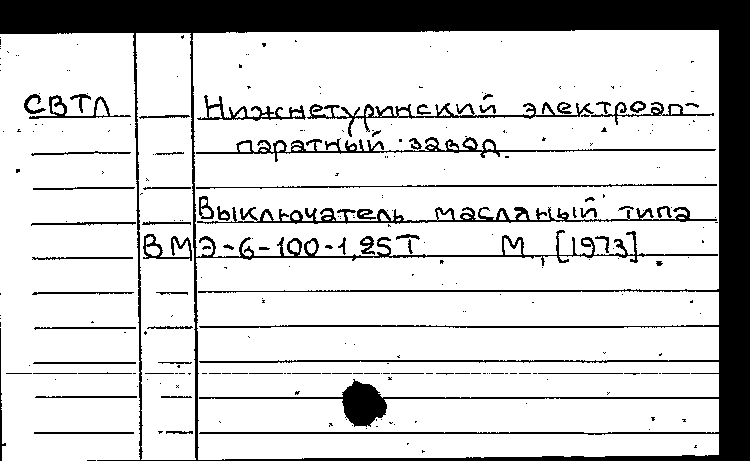 СВТЛ Нижнетуринский электроап-
паратный завод.
Выключатель масляный типа
ВМЭ-6-100-1,25Т М., [1973].